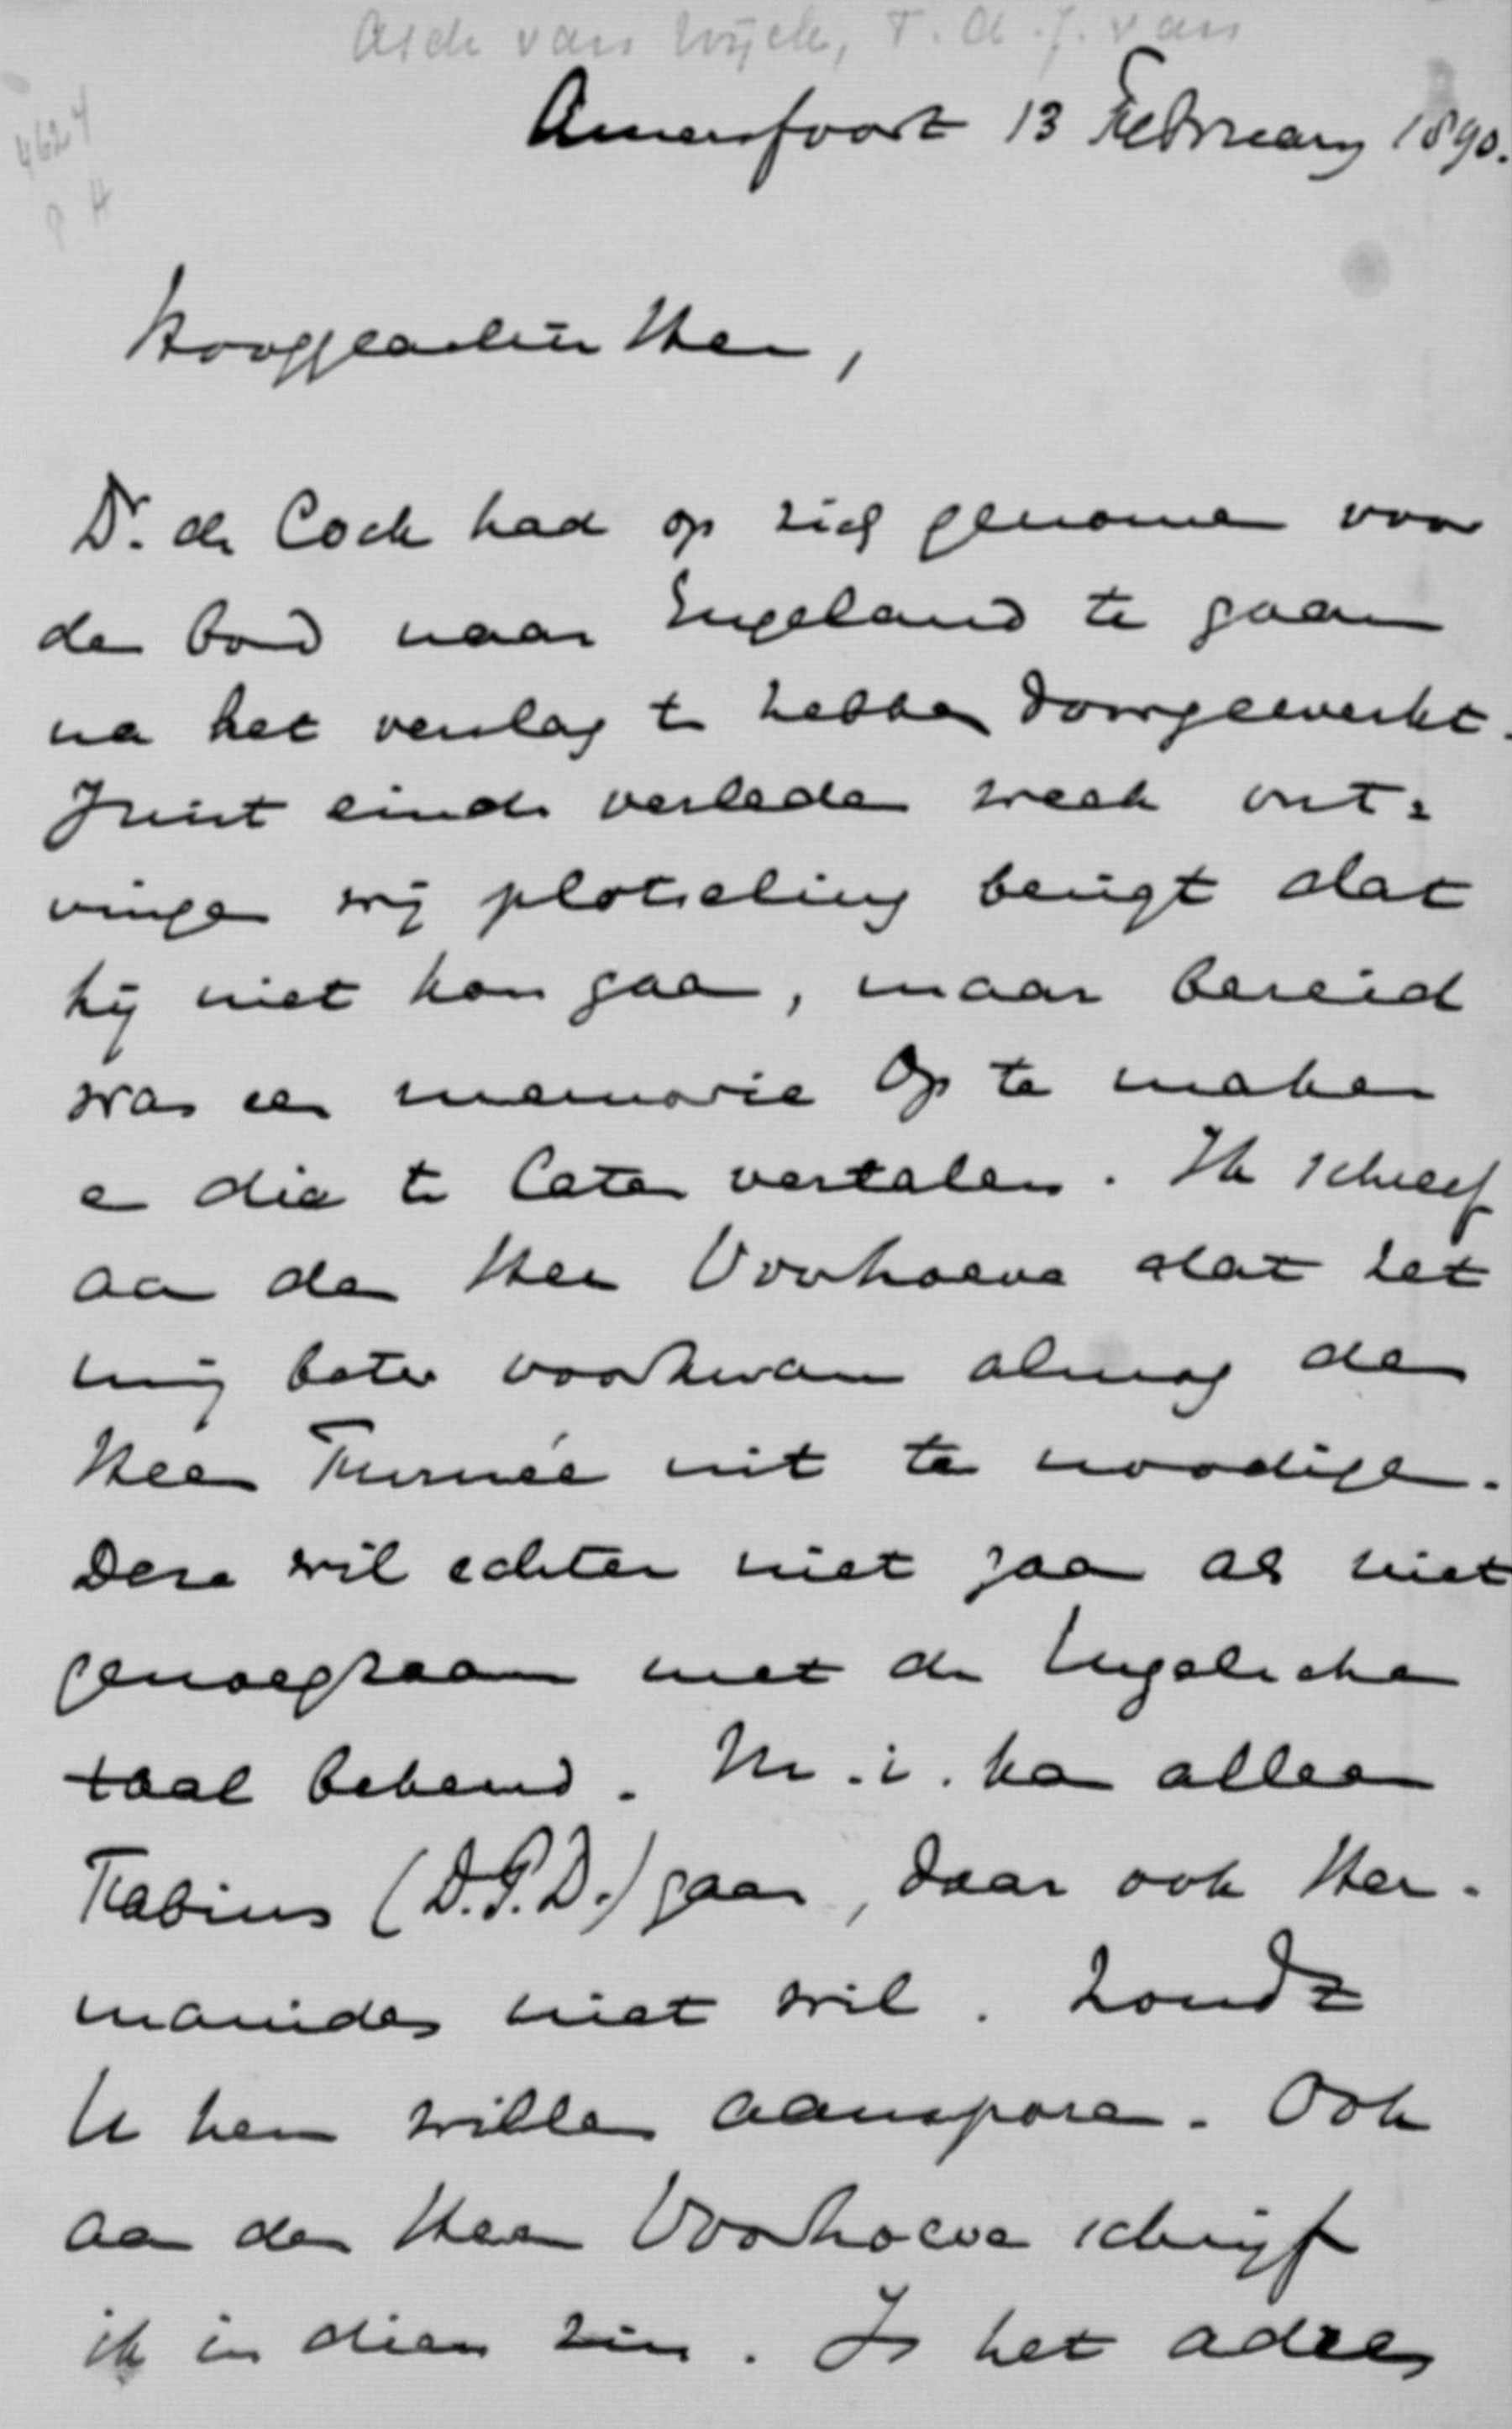 Asch van Wijck, T. A. J. van
4624
P H
Amersfoort 13 February 1890.
Hooggeachte Heer,
Dr. de Cock had op zich genomen voor
den bond naar Engeland te gaan
na het verslag te hebben doorgewerkt.
Juist einde verleden week ont=
vingen wij plotseling berigt dat
hij niet kon gaan, maar bereid
was een memorie op te maken
en die te laten vertalen. Ik schreef
aan den Heer Voorhoeve dat het
mij beter voorkwam alnog den
Heer Turnée uit te noodigen.
Deze wil echter niet gaan als niet
genoegzaam met de Engelsche
taal bekend. M.i. kan alleen
Rabius (D.G.D.) gaan, daar ook Her-
manides niet wil. Zoudt
U hem willen aansporen. Ook
aan den Heer Voorhoeve schrijf
ik in dien zin. Is het adres